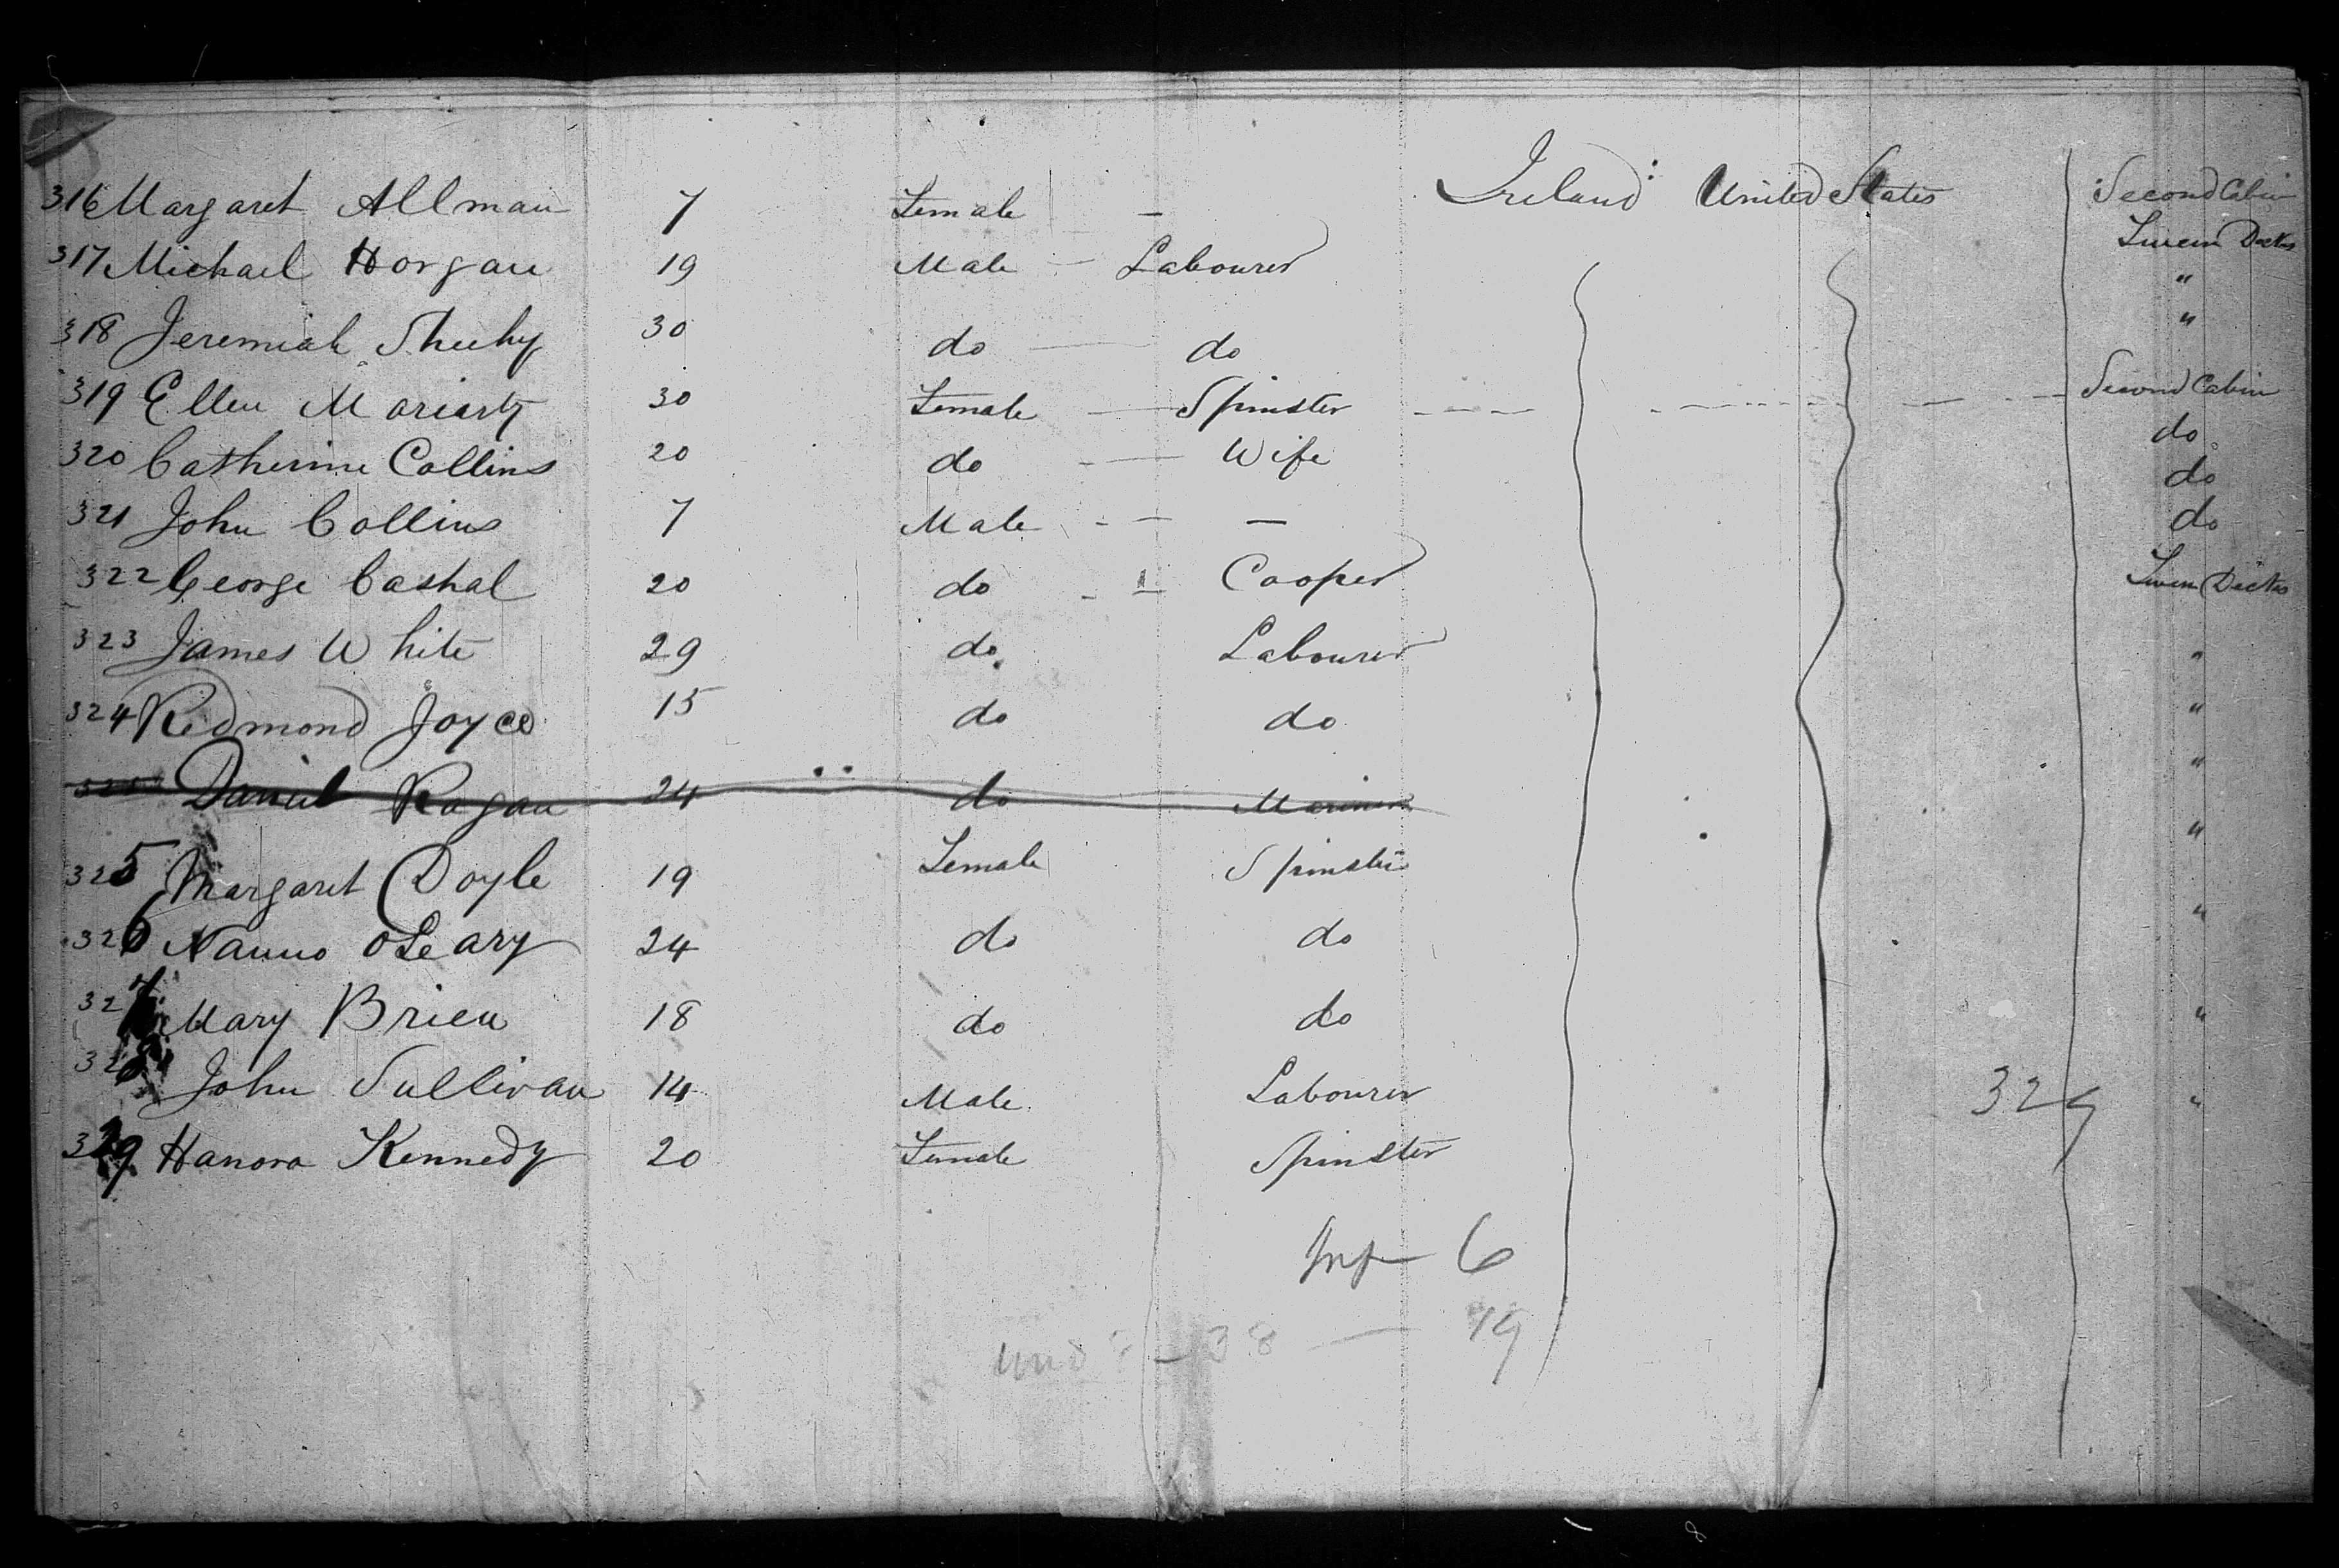 316 Margaret Allman 7 Female — Ireland United States Second Cabin
317 Michael Horgan 19 Male Labourer Tween Decks
318 Jeremiah Sheehy 30 do do "
"
319 Ellen Moriarty 30 Female Spinster Second Cabin
320 Catherine Collins 20 do Wife do
do
321 John Collins 7 Male — do
322 George Cashal 20 do Cooper Tween Decks
323 James White 29 do Labourer "
324 Redmond Joyce 15 do do "
325 Daniel Ragan 24 do Mariner "
325 Margaret Doyle 19 Female Spinster "
326 Nanno OLeary 24 do do "
327 Mary Brien 18 do do "
328 John Sullivan 14 Male Labourer 329 "
329 Hanora Kennedy 20 Female Spinster
Inf 6
38 — 19